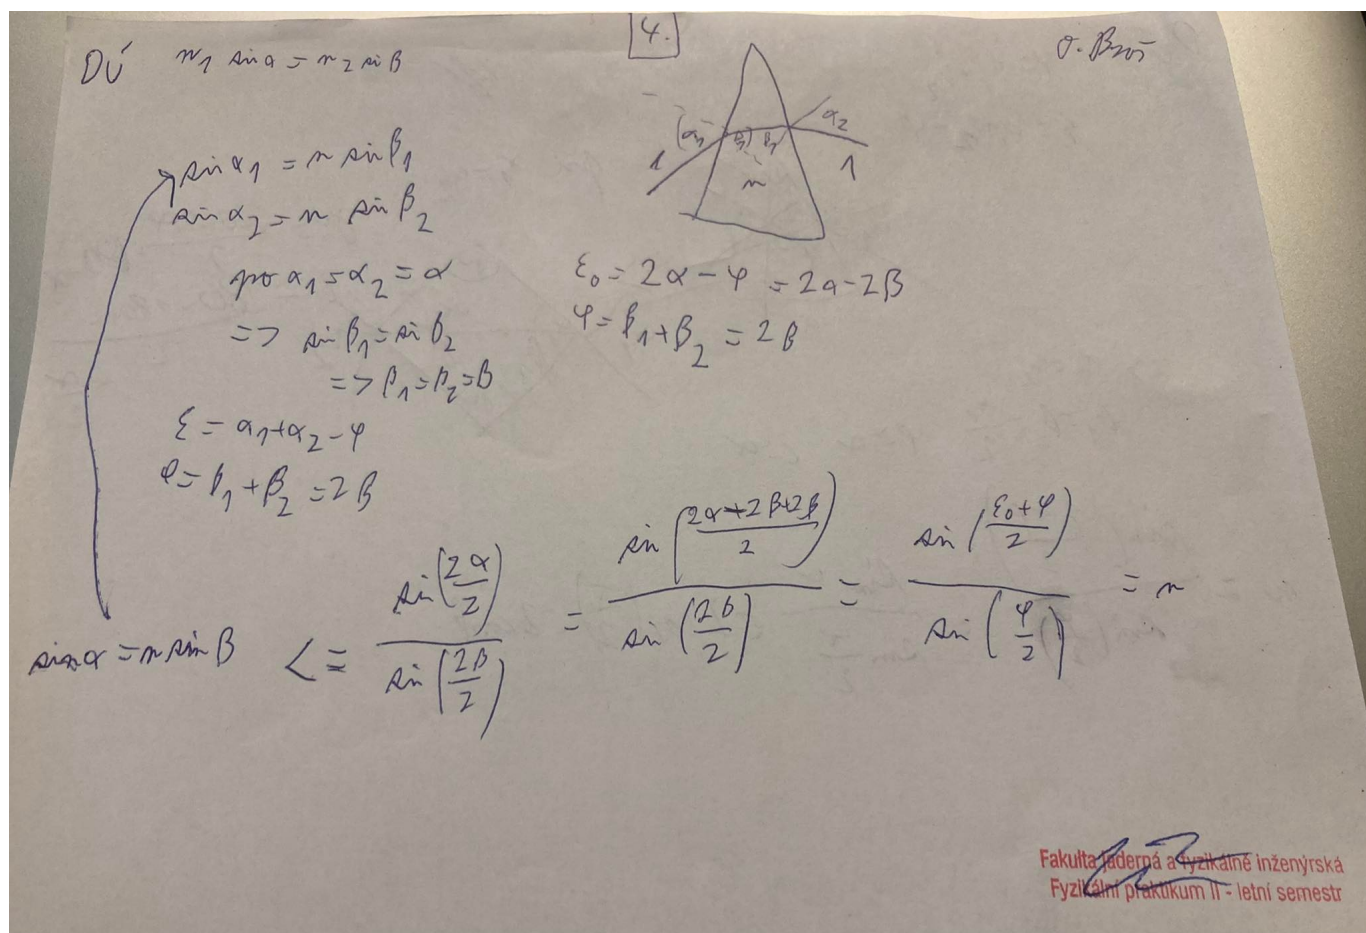 DÚ n₁ sin α = n₂ sin β
4.
O. Brož
sin α₁ = n sin β₁
sin α₂ = n sin β₂
pro α₁ = α₂ = α
=> sin β₁ = sin β₂
=> β₁ = β₂ = β
ε = α₁ + α₂ - φ
φ = β₁ + β₂ = 2β
α₁ β₁ β₂ α₂
1 n 1
ε₀ = 2α - φ = 2α - 2β
φ = β₁ + β₂ = 2β
sin α = n sin β <= sin(2α/2) / sin(2β/2) = sin((2α - 2β + 2β)/2) / sin(2β/2) = sin((ε₀ + φ)/2) / sin(φ/2) = n
Fakulta jaderná a fyzikálně inženýrská
Fyzikální praktikum II - letní semestr